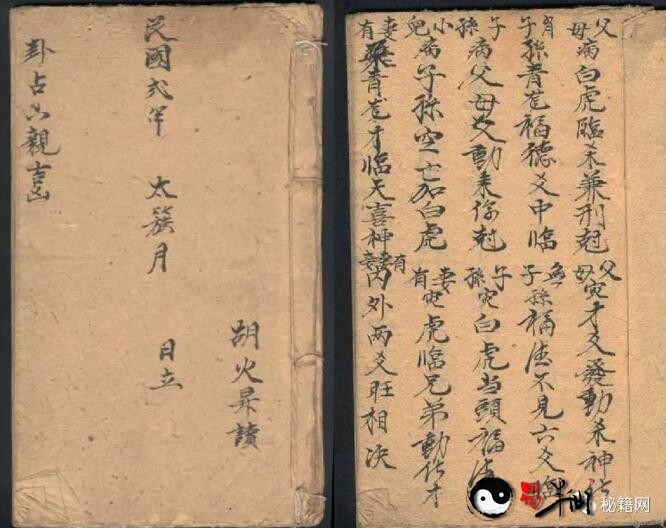 胡火昇讀
民國弍年 太簇月 日立
卦占六親吉凶
父母病白虎臨杀兼刑尅
有子孫青龙福德爻中临
子孫病父母爻動来傷尅
小兒病子孫空亡加白虎
有妻青龙才临天喜神
父母灾才爻發動杀神
無子孫福德不見六爻
子孫灾白虎当頭福德
妻有灾虎临兄弟動化才
有妻妾内外两爻旺相决
秘籍网